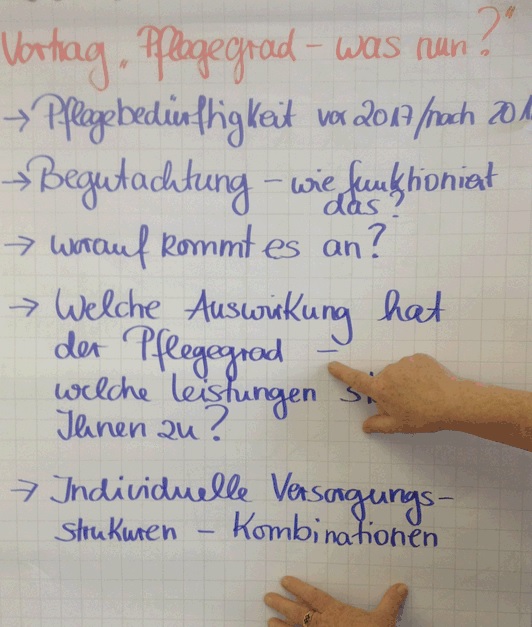 Vortrag „Pflegegrad – was nun?“
→ Pflegebedürftigkeit vor 2017/nach 201
→ Begutachtung – wie funktioniert
das?
→ worauf kommt es an?
→ Welche Auswirkung hat
der Pflegegrad –
welche Leistungen
Ihnen zu?
→ Individuelle Versorgungs-
strukuren – Kombinationen